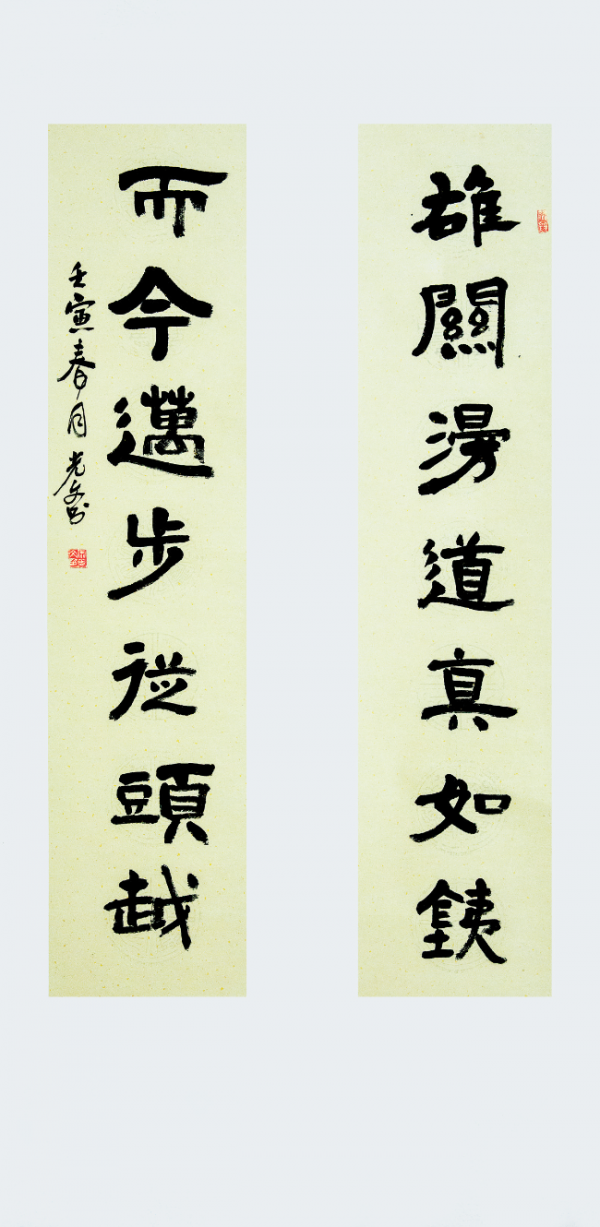 雄關漫道真如鉄
而今邁步從頭越
壬寅春月光